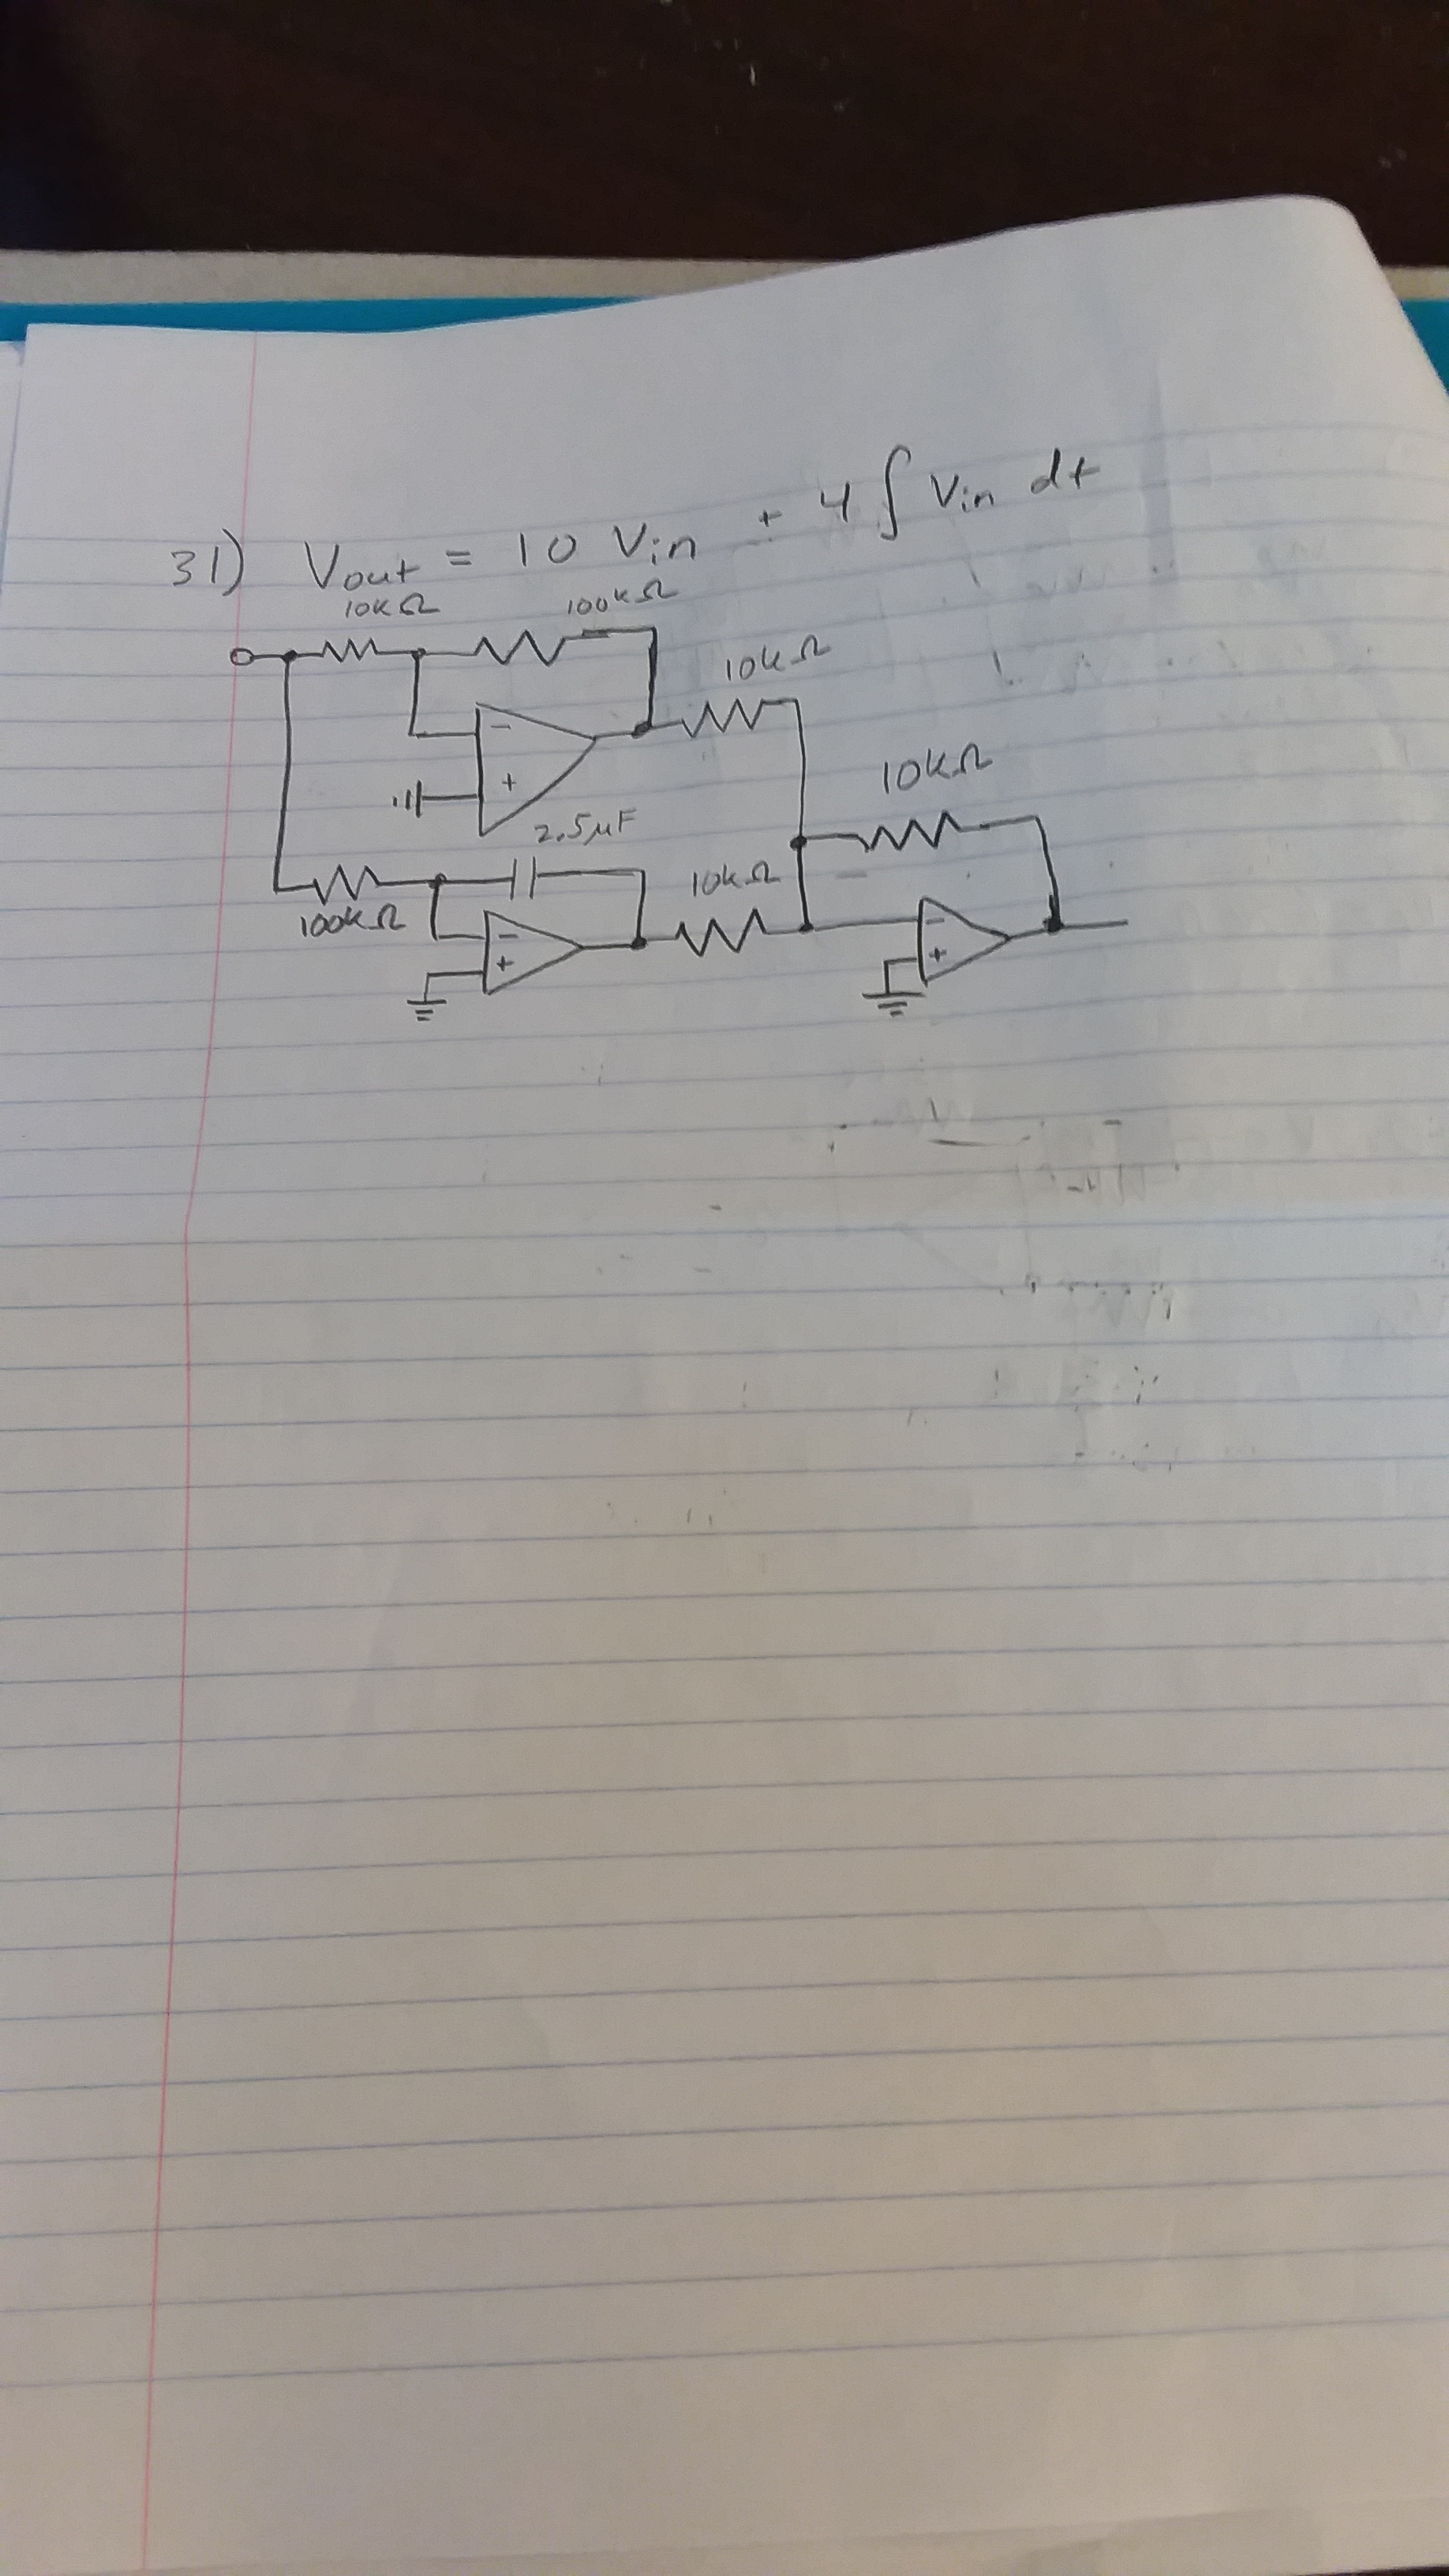 31) Vout = 10 Vin + 4 ∫ Vin dt
10kΩ 100kΩ
10kΩ
- +
2.5μF
10kΩ
10kΩ
100kΩ
- +
- +